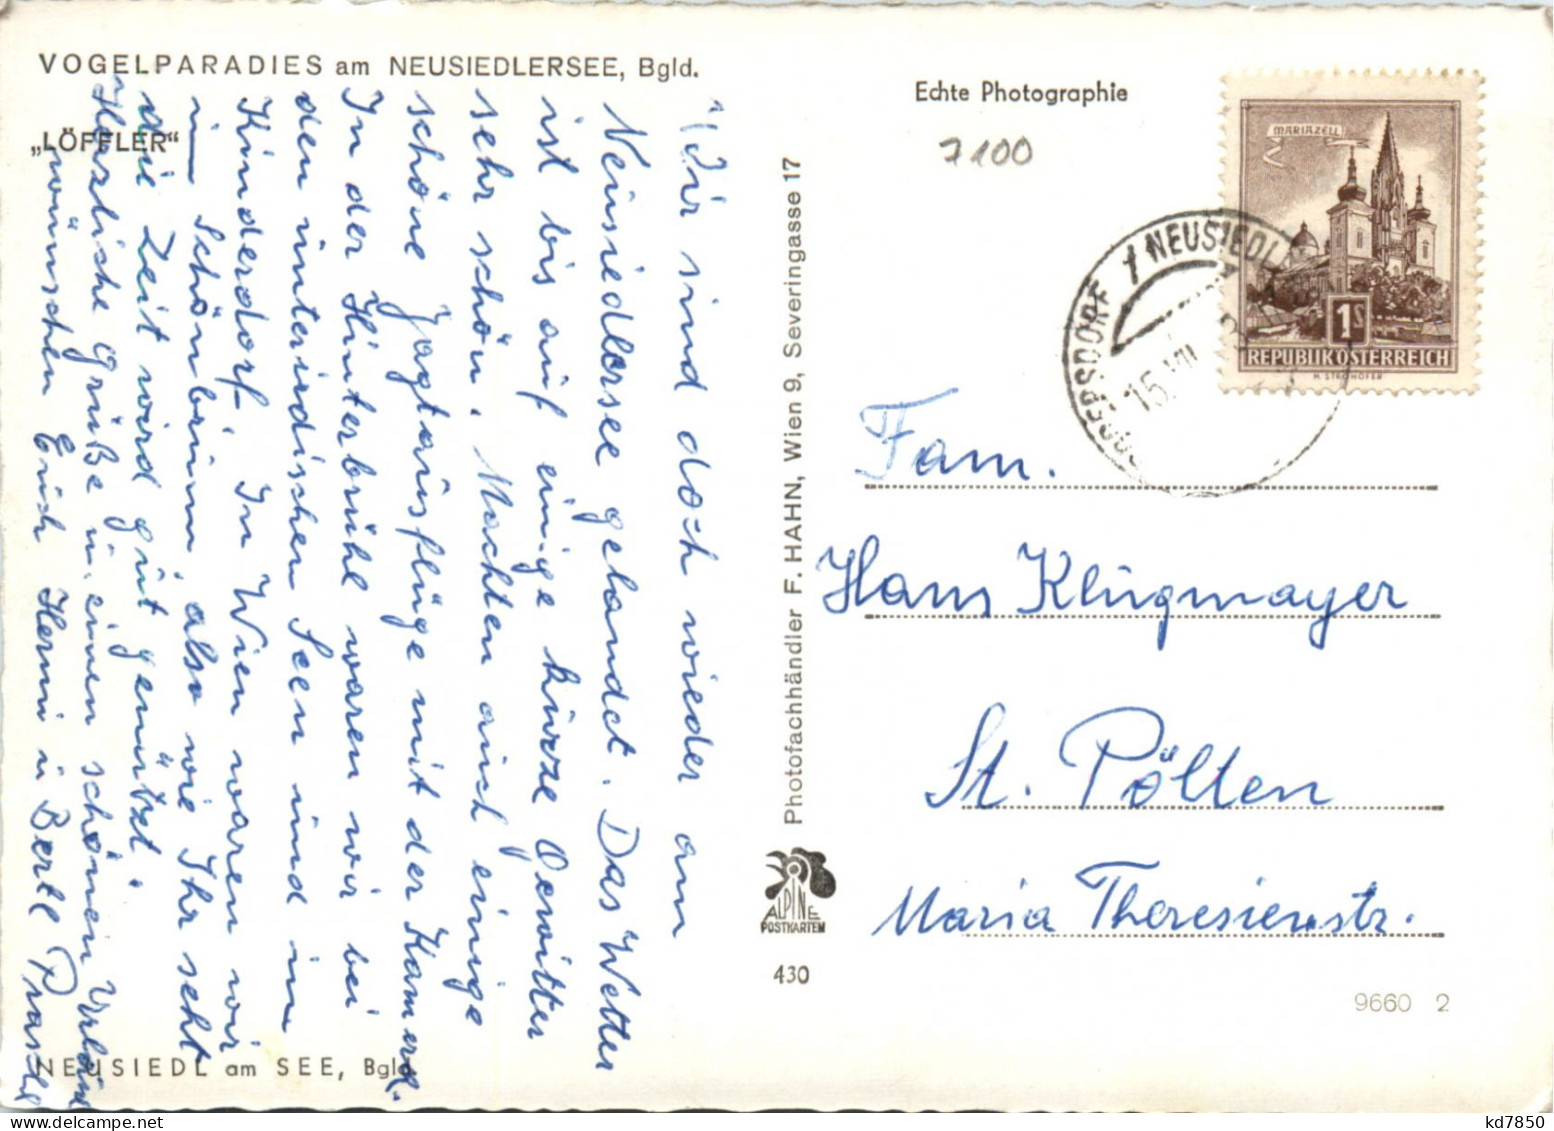 VOGELPARADIES am NEUSIEDLERSEE, Bgld.
„LÖFFLER"
Wir sind doch wieder am
Neusiedlersee gelandet. Das Wetter
ist bis auf einige kurze Gewitter
sehr schön. Machten auch einige
schöne Jagtausflüge mit der Kamera.
In der Hinterbrühl waren wir bei
den unterirdischen Seen und im
Kinderdorf. In Wien waren wir
in Schönbrunn, also wie Ihr seht
die Zeit wird gut genützt.
Herzliche Grüße u. einen schönen Urlaub
wünschen Erich Hermi u Bertl
NEUSIEDL am SEE, Bgld.
Photofachhändler F. HAHN, Wien 9, Severingasse 17
ALPINE
POSTKARTEN
430
Echte Photographie
7100
MARIAZELL
1S
REPUBLIK ÖSTERREICH
H. STROHOFER
NEUSIEDL
15. VII
Fam.
Hans Klugmayer
St. Pölten
Maria Theresienstr.
9660 2
kd7850